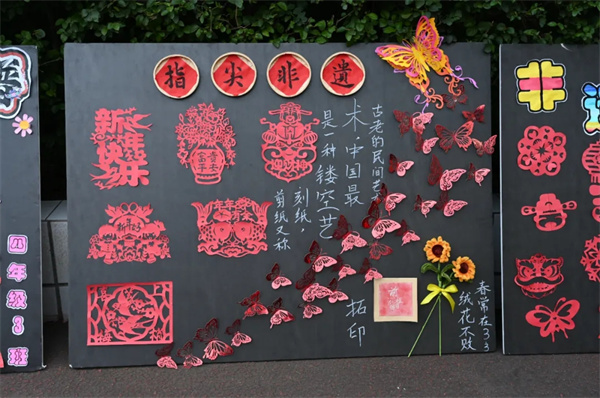 指尖非遗
新年快乐
年年有余
剪纸又称
刻纸，
是一种镂空艺
术，中国最
古老的民间艺
拓印
绒花不败
春常在
四年级3班
非